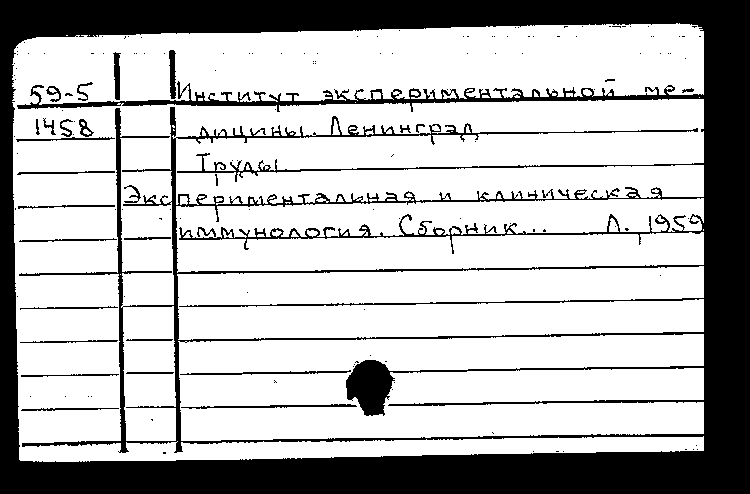 59-5 Институт экспериментальной ме-
1458 дицины. Ленинград
Труды.
Экспериментальная и клиническая
иммунология. Сборник... Л., 1959